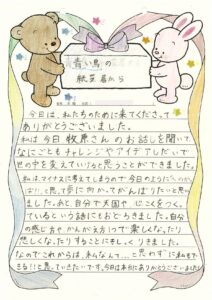 青い鳥の
紙芝居から
今日は、私たちのために来てくださって
ありがとうございました。
私は今日牧原さんのお話しを聞いて
なにごともチャレンジやアイデアしだいで
世の中を変えていけると思うことができました。
私はマイナスに考えてしまうので今日のように
と思って歩に向かってがんばりたいと思い
ました。あと、自分で天国や、心こくをつくっ
ているという話にもおどろきました。自分
の感じ方やかんがえ方1つで楽しくなったり
悲しくなったりすることにもしっくりきました。
なのでこれからは、「私なんて…」と思わずに「私もで
きる!!」と思っていきたいです。今日は本当にありがとうございました